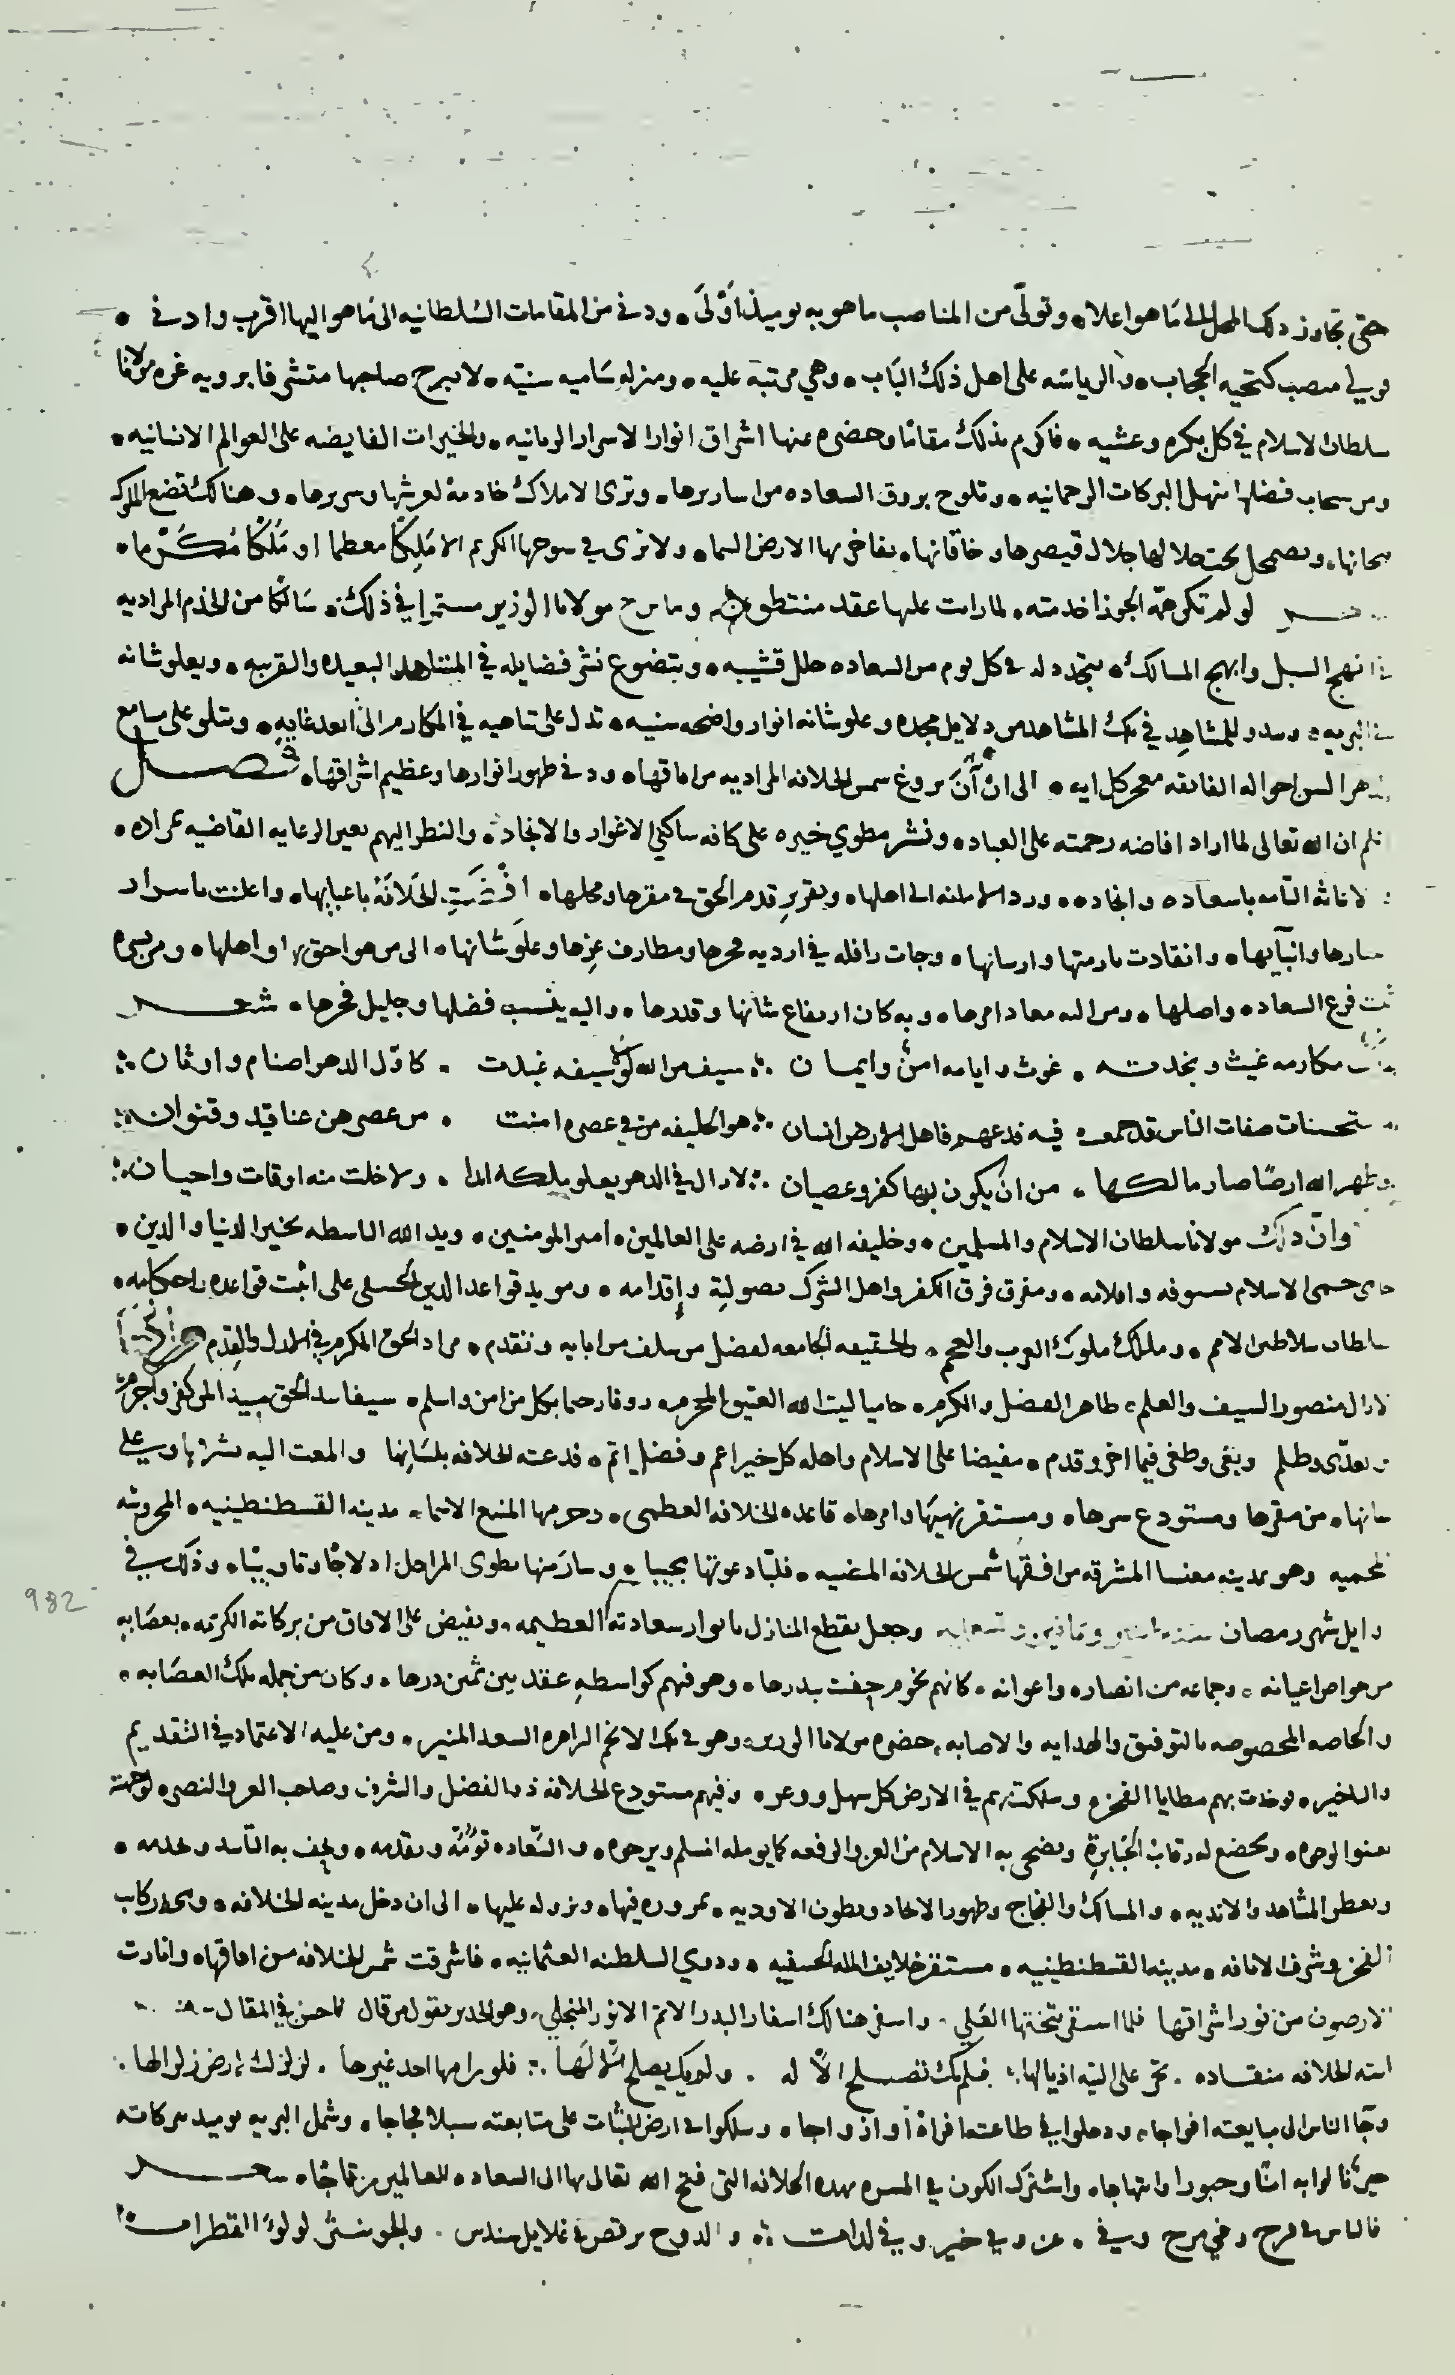 حتى تجاوز ذلك المحل الى ما هو اعلاه وتولّى من المناصب ما هو به يوميذ اَوْلىَ ٥ ودنى من المقامات السُلطانيه الى مَا هو اليها اقرب وادنى ٥
وولي منصب كتخيه الحجاب ٥ والرياسه على اهل ذلك البَاب ٥ وهي مرتبة عليه ٥ ومنزله سَاميه سنيّه ٥ لا يبرح صاحبها متشرفا برويه غره مولانا
سلطان الاسلام في كل بكره وعشيه ٥ فاكرم بذلك مقامًا وحضره منها اشراق انوار الاسرار الربانيه ٥ والخيرات الفايضه على العوالم الانسانيه ٥
ومن سحاب فضلها تنهل البركات الرحمانيه ٥ وتلوح بروق السعاده من اساريرها ٥ وترى الاملاك خادمةً لعرشها وسريرها ٥ وهنالك تضع الملوك
تيجانها ٥ ويضمحل تحت جلالها جلال قيصرها وخاقانها ٥ يفاخر بها الارض السما ٥ ولا ترى في سوحها الكريم الا مَلِكًا معظما او مَلَكًا مُكَرَّما ٥
لو لم تكن همّة الجوزا خدمته ٥ لما رايت عليها عقد منتطق وما برح مولانا الوزير مستمرا في ذلك ٥ سَالكًا من الخدم المراديه
انهج السبل وابهج المسالك ٥ يتجدد له في كل يوم من السعاده حلل قشيبه ٥ ويتضوع نشر فضايله في المشاهد البعيده والقريبه ٥ ويعلو شانه
في البريه ٥ ويبدو للمشاهِدِ في تلك المشاهد من دلايل مجده وعلو شانه انوار واضحه سنيه ٥ تدل على تناهيه في المكارم الى ابعد غايه ٥ ويتلو على مسامع
الدهر السن احواله الفايقه معجز كل ايه ٥ الى ان آنَ بزوغ شمس الخلافه المراديه من افاقها ٥ ودنى ظهور انوارها وعظيم اشراقها ٥ فصل
اعلم ان الله تعالى لما اراد افاضه رحمته على العباد ٥ ونشر مطوي خيره على كافه ساكني الاغوار والانجاد ٥ والنظر اليهم بعين الرعايه القاضيه بمراده ٥
باسعاده وانجاده ٥ ورد الامانه الى اهلها ٥ وتقرير قدم الحق في مقرها ومحلها ٥ افْضَتِ الخلَافَهُ باعبايها ٥ واعلنت باسرار
وانبآيها ٥ وانقادت بازمتها وارسانها ٥ وجات رافله في ارديه فخرها ومطارف عِزها وعلو شانها ٥ الى من هو احق بها واهلها ٥ ومن به
ثبت فرع السعاده واصلها ٥ ومن اليه معاد امرها ٥ وبه كان ارتفاع شانها وقدرها ٥ واليه ينسب فضلها وجليل فخرها ٥ شعر
مكارمه غيث ونجدته ٥ غوث وايامه امنٌ وايمان ؞ سيف من الله لولا سيفه عُبدت ٥ كاوّل الدهر اصنام واوثان ؞
مستحسنات صفات الناس قد جمعت فيه فدعهم فاهل الارض انسان ؞ هو الخليفه من في عصره امنت ٥ من عصرهن عناقيد وقنوان ؞
وطهر الله ارضًا صار مالكها ٥ من ان يكون بها كفر وعصيان ؞ لازال في الدهر يعلو ملكه ابدا ٥ ولا خلت منه اوقات واحيان ؞
وانّ ذلك مولانا سلطان الاسلام والمسلمين ٥ وخليفه الله في ارضه على العالمين ٥ امير المومنين ٥ ويد الله الباسطه بخير الدنيا والدين ٥
حامي حمى الاسلام بسيوفه واقلامه ٥ ومفرق فرق الكفر واهل الشرك بصولتِهِ وإقدامه ٥ ومويد قواعد الدين الحنيفي على اثبت قواعده واحكامه ٥
سلطان سلاطين الامم ٥ وملك ملوك العرب والعجم ٥ والحقيقه الجامعه لفضل من سلف من ابايه وتقدم ٥ مراد الحق المكرم في الازل والقِدم
لازال منصور السيف والعلم ٥ طاهر الفضل والكرم ٥ حاميا لبيت الله العتيق المحرم ٥ روفا رحيما بكل من امن واسلم ٥ سيفا بيد الحق مبيدا لمن كفر واجرم
وتعدّى وظلم وبغى وطغى فيما اخر وقدم ٥ مفيضا على الاسلام واهله كل خير اعم وفضل اتم ٥ فدعته الخلافه بلسَانِها والمعت اليه
من مقرها ومستودع سرها ٥ ومستقر نهيهَا وامرها ٥ قاعده الخلافه العظمى ٥ وحرمها المنيع الاسما ٥ مدينه القسطنطينيه ٥ المحروسَه
المحميه وهو بمدينه مغنسا المشرقه من افقهَا شمس الخلافه المضيه ٥ فلبّا دعوتها مجيبا ٥ وسار منها يطوى المراحل ادلاجًا وتاويبًا ٥ وذلك في
اوايل شهر رمضان سنه اثنين وثمانين وتسعمايه وجعل يقطع المنازل بانوار سعادته العظيمه ٥ ويفيض على الافاق من بركاته الكريمه ٥ بعصَابه
من خواص اعيانه ٥ وجماعه من انصاره واعوانه ٥ كانهم نجوم حفت ببدرها ٥ وهو فيهم كواسطه عقد بين ثمين درها ٥ وكان من جمله تلك العصَابه ٥
والخاصه المخصوصه بالتوفيق والهدايه والاصابه ٥ حضره مولانا الوزير ٥ وهو في تلك الانجم الزاهره السعد المنير ٥ ومن عليه الاعتماد في التقديم
والتاخير ٥ وخدت بهم مطايا الفخر ٥ وسلكت بهم في الارض كل سهل ووعر ٥ وفيهم مستودع الخلافه ذو الفضل والشرف وصاحب العز والنصره
تعنوا الوجوه ٥ وتخضع له رقابُ الجَبَابرةِ ويضحى به الاسلام من العز والرفعه كما يومله المسلم ويرجوه ٥ والسَّعاده تَؤُمُّهُ وتقدمه ٥ ويحف به التاييد ويخدمه ٥
وتعطر المشاهد والانديه ٥ والمسالك والفجاج وظهور الانجاد وبطون الاوديه ٥ بمروره فيها ٥ ونزوله عليها ٥ الى ان دخل مدينه الخلافه ٥ ومحط ركاب
الفخر وشرف الانافه ٥ مدينه القسطنطينيه ٥ مستقر خلايف المله الحنيفيه ٥ وذوي السلطنه العثمانيه ٥ فاشرقت شمس الخلافه من افاقها ٥ وانارت
الارضون من نور اشراقها فلما استقر بتختها العَلي ٥ واسفر هنالك اسفار البدر الاتمّ الانور المنجلي ٥ وهو الجدير بقول من قال فاحسن في المقال
اتته الخلافه منقاده ٥ تجرّ على اليه اذيالها ؞ فلم تك تصلح الاّ له ٥ ولم يك يصلح الاّ لَهَا ؞ فلو رامها احد غيرها ٥ لزلزلت الارض زلزالها ٥
وجَا الناس الى مبايعته افواجا ٥ ودخلوا في طاعته افرادًا وازواجا ٥ وسلكوا في ارض الثبات على متابعته سبلا فجاجا ٥ وشمل البريه يوميذ بركاته
نالوا به امنًا وحبورا وابتهاجا ٥ واشترك الكون في المسره بهذه الخلافه التي فتح الله تعالى بها الى السعاده للعالمين رتاجًا ٥ شعر
فالناس في فرح وفي مرح وفي ٥ عز وفي خير وفي لذات ؞ والدوح يرقص في غلايل سندس ٥ والجو ينثر لولو القطرات
982